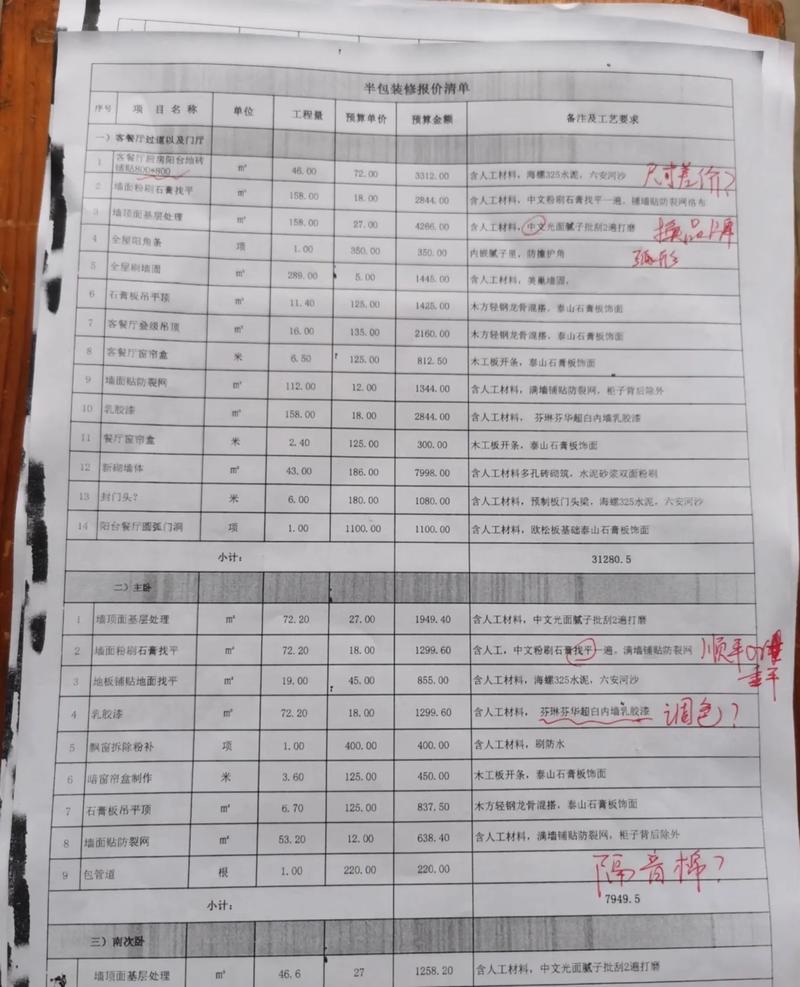 半包装修报价清单
序号 项目名称 单位 工程量 预算单价 预算金额 备注及工艺要求
一）客餐厅过道以及门厅
1 客餐厅厨房阳台地砖铺贴800*800 ㎡ 46.00 72.00 3312.00 含人工材料，海螺325水泥，六安河沙 尺寸差价？
2 墙面粉刷石膏找平 ㎡ 158.00 18.00 2844.00 含人工材料，中文粉刷石膏找平一遍，铺墙贴防裂网格布
3 墙顶面基层处理 ㎡ 158.00 27.00 4266.00 含人工材料，中文光面腻子批刮2遍打磨 换品牌
4 全屋阳角条 项 1.00 350.00 350.00 内嵌腻子里，防撞护角 弧形
5 全屋刷墙固 ㎡ 289.00 5.00 1445.00 含人工材料，美巢墙固，
6 石膏板吊平顶 ㎡ 11.40 125.00 1425.00 木方轻钢龙骨混搭，泰山石膏板饰面
7 客餐厅叠级吊顶 ㎡ 16.00 135.00 2160.00 木方轻钢龙骨混搭，泰山石膏板饰面
8 客餐厅窗帘盒 米 6.50 125.00 812.50 木工板开条，泰山石膏板饰面
9 墙面贴防裂网 ㎡ 112.00 12.00 1344.00 含人工材料，满墙铺贴防裂网，柜子背后除外
10 乳胶漆 ㎡ 158.00 18.00 2844.00 含人工材料， 芬琳芬华超白内墙乳胶漆
11 餐厅窗帘盒 米 2.40 125.00 300.00 木工板开条，泰山石膏板饰面
12 新砌墙体 ㎡ 43.00 186.00 7998.00 含人工材料多孔砖砌筑，水泥砂浆双面粉刷
13 封门头? 米 6.00 180.00 1080.00 含人工材料，预制板门头梁，海螺325水泥，六安河沙
14 阳台餐厅圆弧门洞 项 1.00 1100.00 1100.00 含人工材料，欧松板基础泰山石膏板饰面
小计： 31280.5
二）主卧
1 墙顶面基层处理 ㎡ 72.20 27.00 1949.40 含人工材料，中文光面腻子批刮2遍打磨
2 墙面粉刷石膏找平 ㎡ 72.20 18.00 1299.60 含人工，中文粉刷石膏找平一遍。满墙铺贴防裂网 顺平or 垂平
3 地板铺贴地面找平 ㎡ 19.00 45.00 855.00 含人工材料，海螺325水泥，六安河沙
4 乳胶漆 ㎡ 72.20 18.00 1299.60 含人工材料， 芬琳芬华超白内墙乳胶漆 调色？
5 飘窗拆除粉补 项 1.00 400.00 400.00 含人工材料，刷防水
6 暗窗帘盒制作 米 3.60 125.00 450.00 木工板开条，泰山石膏板饰面
7 石膏板吊平顶 ㎡ 6.70 125.00 837.50 木方轻钢龙骨混搭，泰山石膏板饰面
8 墙面贴防裂网 ㎡ 53.20 12.00 638.40 含人工材料，满墙铺贴防裂网，柜子背后除外
9 包管道 根 1.00 220.00 220.00 隔音棉？
小计： 7949.5
三）南次卧
墙顶面基层处理 ㎡ 46.6 27 1258.20 含人工材料，中文光面腻子批刮2遍打磨